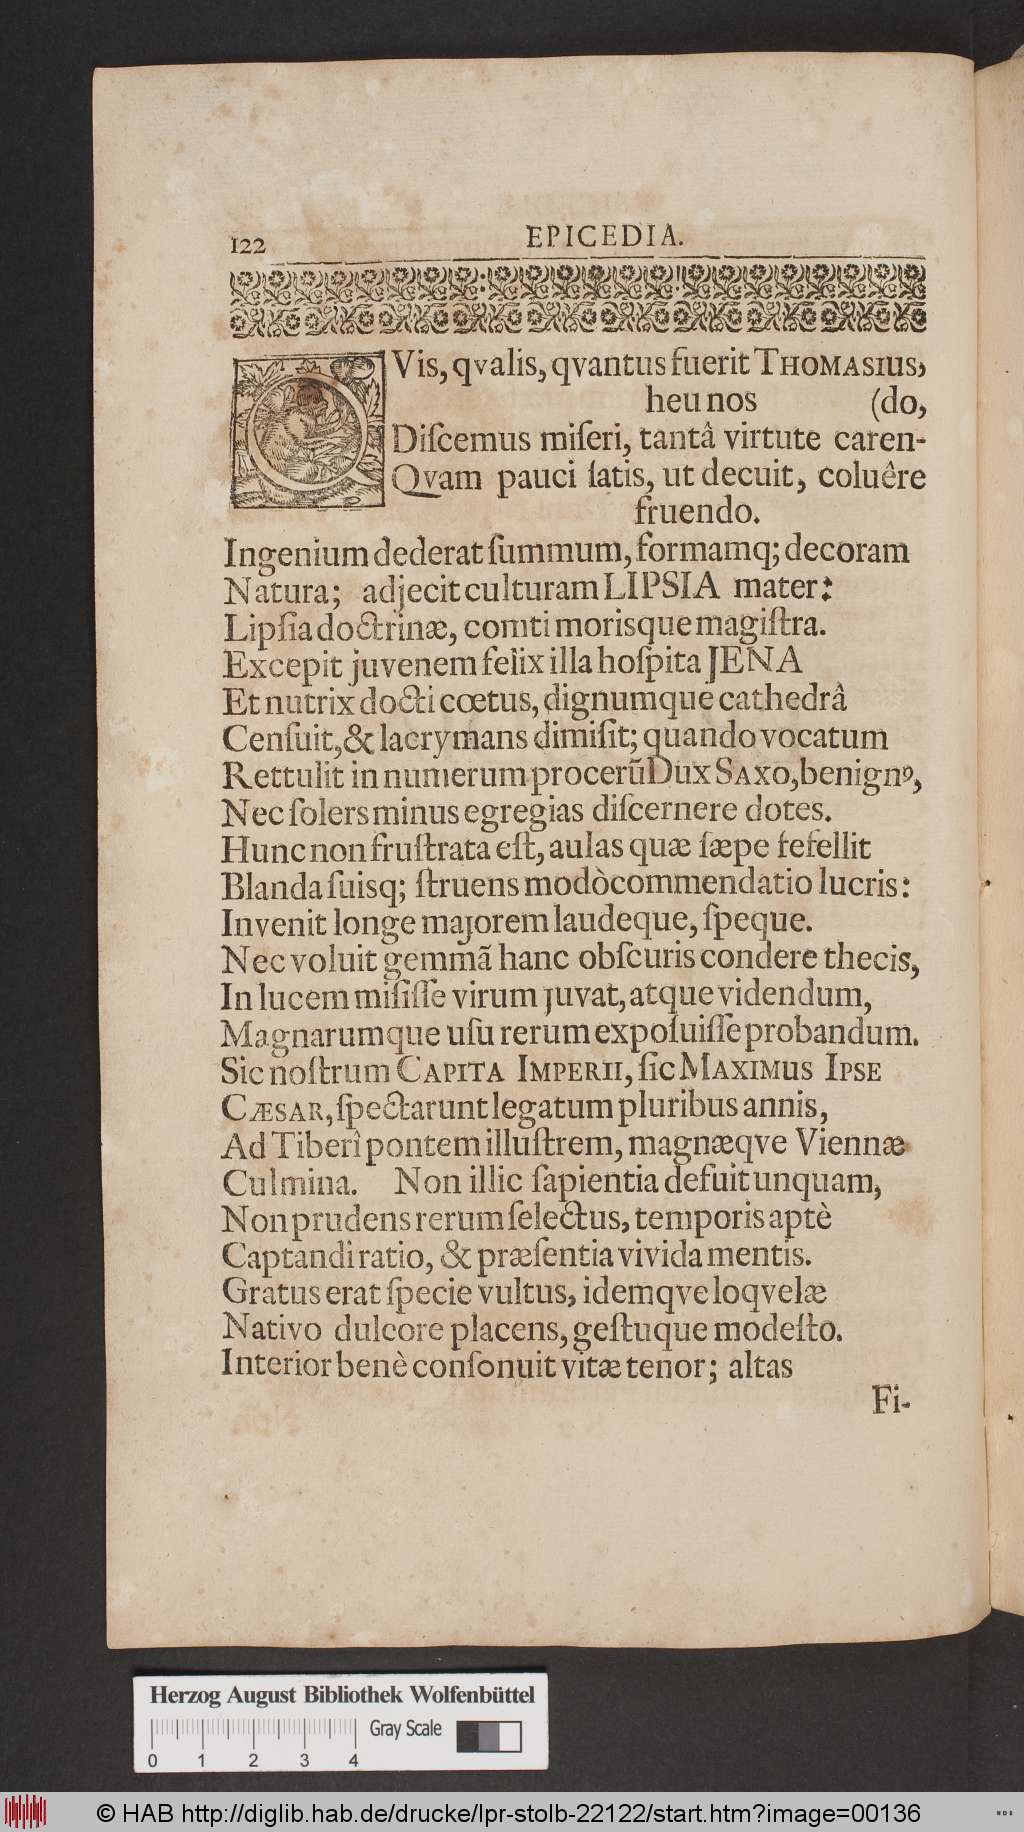 122 EPICEDIA.
QVis, qvalis, qvantus fuerit THOMASIUS,
heu nos (do,
Diſcemus miſeri, tantâ virtute caren-
Qvam pauci ſatis, ut decuit, coluêre
fruendo.
Ingenium dederat ſummum, formamq; decoram
Natura; adjecit culturam LIPSIA mater:
Lipſia doctrinæ, comti morisque magiſtra.
Excepit juvenem felix illa hoſpita JENA
Et nutrix docti cœtus, dignumque cathedrâ
Cenſuit, & lacrymans dimiſit; quando vocatum
Rettulit in numerum procerũ Dux SAXO, benignꝰ,
Nec ſolers minus egregias diſcernere dotes.
Hunc non fruſtrata eſt, aulas quæ ſæpe fefellit
Blanda ſuisq; ſtruens modò commendatio lucris:
Invenit longe majorem laudeque, ſpeque.
Nec voluit gemmã hanc obſcuris condere thecis,
In lucem miſiſſe virum juvat, atque videndum,
Magnarumque uſu rerum expoſuiſſe probandum.
Sic noſtrum CAPITA IMPERII, ſic MAXIMUS IPSE
CÆSAR, ſpectarunt legatum pluribus annis,
Ad Tiberî pontem illuſtrem, magnæqve Viennæ
Culmina. Non illic ſapientia defuit unquam,
Non prudens rerum ſelectus, temporis aptè
Captandi ratio, & præſentia vivida mentis.
Gratus erat ſpecie vultus, idemqve loqvelæ
Nativo dulcore placens, geſtuque modeſto.
Interior benè conſonuit vitæ tenor; altas
Fi-
Herzog August Bibliothek Wolfenbüttel
Gray Scale
0 1 2 3 4
© HAB http://diglib.hab.de/drucke/lpr-stolb-22122/start.htm?image=00136